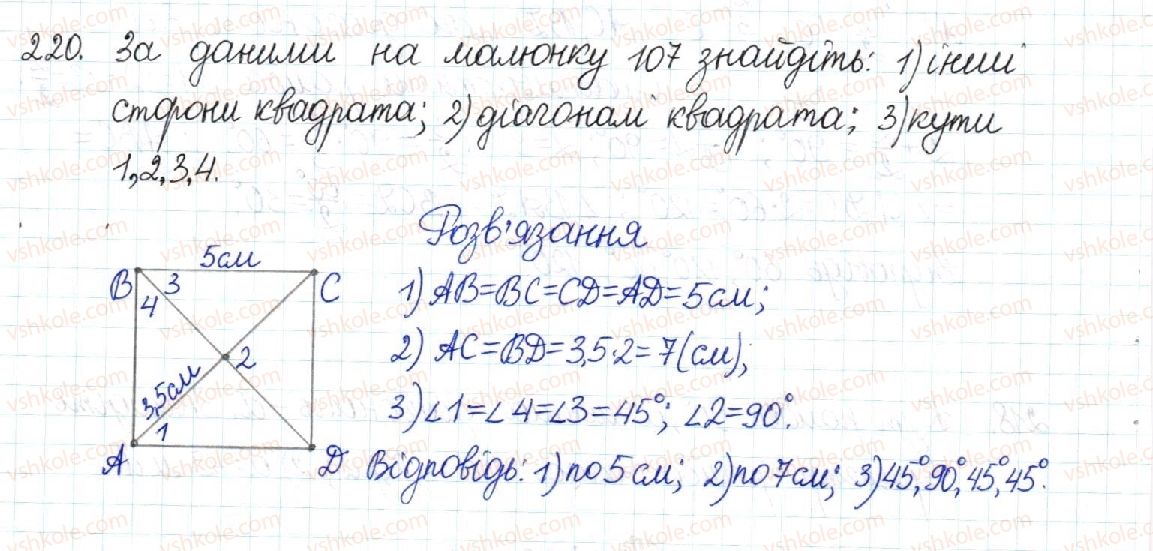 220. За даними на малюнку 107 знайдіть: 1) інші
сторони квадрата; 2) діагоналі квадрата; 3) кути
1, 2, 3, 4.
Розв'язання
5см
B 3 C
4
2
3,5см
1
A D
1) AB=BC=CD=AD=5см;
2) AC=BD=3,5·2=7(см);
3) ∠1=∠4=∠3=45°; ∠2=90°.
Відповідь: 1) по 5 см; 2) по 7 см; 3) 45°, 90°, 45°, 45°.
vshkole.com